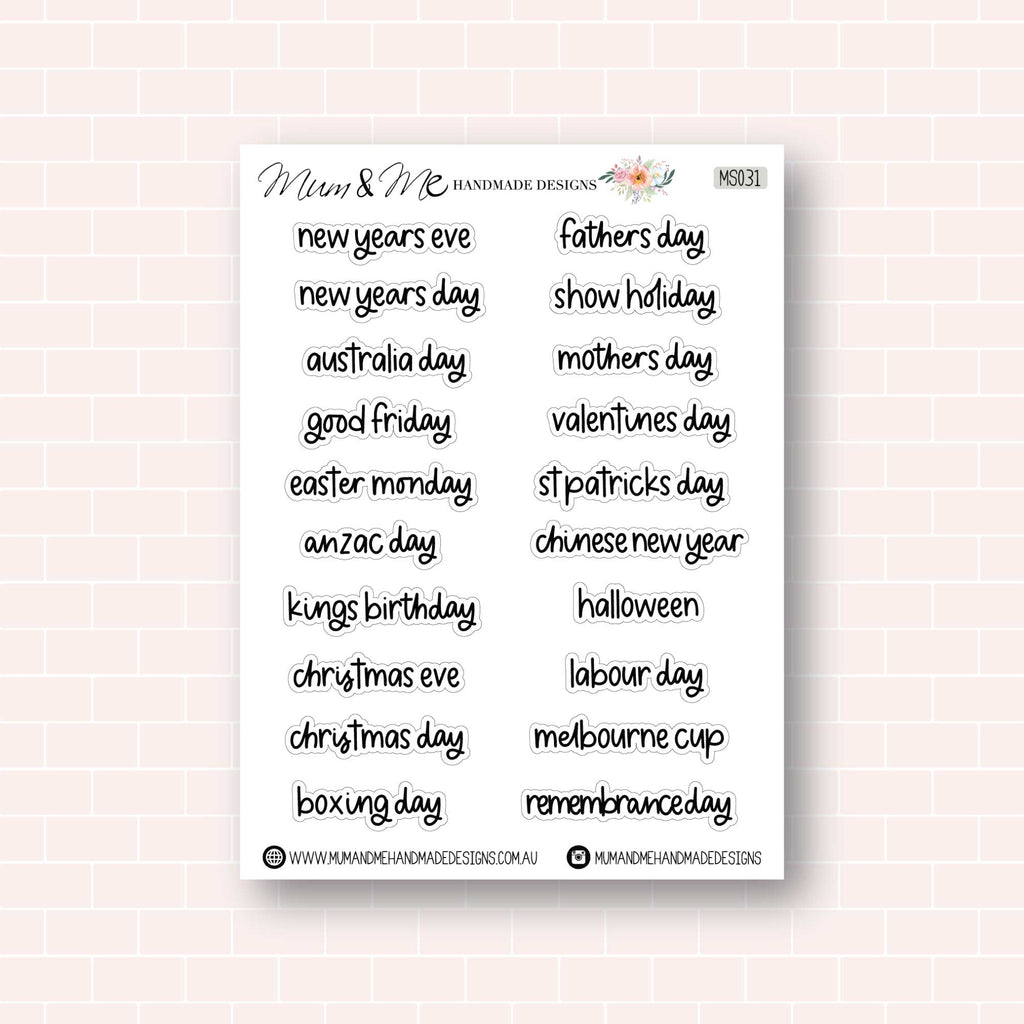 Mum & Me HANDMADE DESIGNS
MS031
new years eve
new years day
australia day
good friday
easter monday
anzac day
kings birthday
christmas eve
christmas day
boxing day
fathers day
show holiday
mothers day
valentines day
st patricks day
chinese new year
halloween
labour day
melbourne cup
remembrance day
WWW.MUMANDMEHANDMADEDESIGNS.COM.AU
MUMANDMEHANDMADEDESIGNS